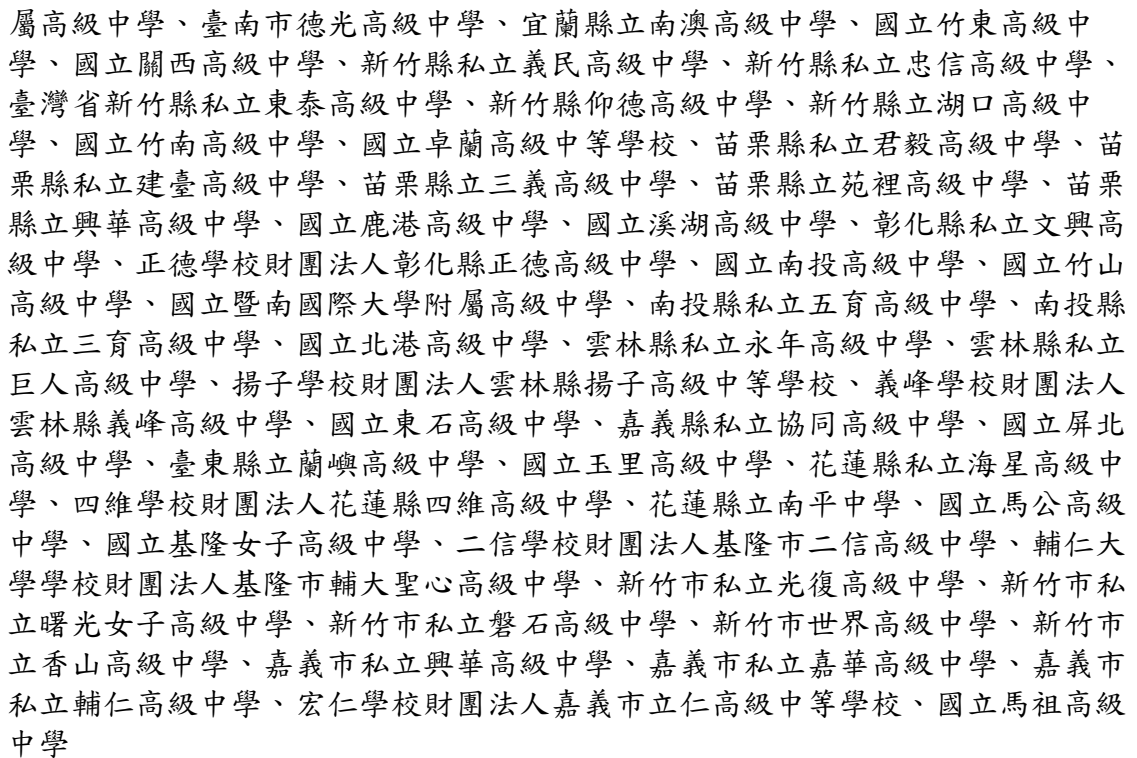 屬高級中學、臺南市德光高級中學、宜蘭縣立南澳高級中學、國立竹東高級中
學、國立關西高級中學、新竹縣私立義民高級中學、新竹縣私立忠信高級中學、
臺灣省新竹縣私立東泰高級中學、新竹縣仰德高級中學、新竹縣立湖口高級中
學、國立竹南高級中學、國立卓蘭高級中等學校、苗栗縣私立君毅高級中學、苗
栗縣私立建臺高級中學、苗栗縣立三義高級中學、苗栗縣立苑裡高級中學、苗栗
縣立興華高級中學、國立鹿港高級中學、國立溪湖高級中學、彰化縣私立文興高
級中學、正德學校財團法人彰化縣正德高級中學、國立南投高級中學、國立竹山
高級中學、國立暨南國際大學附屬高級中學、南投縣私立五育高級中學、南投縣
私立三育高級中學、國立北港高級中學、雲林縣私立永年高級中學、雲林縣私立
巨人高級中學、揚子學校財團法人雲林縣揚子高級中等學校、義峰學校財團法人
雲林縣義峰高級中學、國立東石高級中學、嘉義縣私立協同高級中學、國立屏北
高級中學、臺東縣立蘭嶼高級中學、國立玉里高級中學、花蓮縣私立海星高級中
學、四維學校財團法人花蓮縣四維高級中學、花蓮縣立南平中學、國立馬公高級
中學、國立基隆女子高級中學、二信學校財團法人基隆市二信高級中學、輔仁大
學學校財團法人基隆市輔大聖心高級中學、新竹市私立光復高級中學、新竹市私
立曙光女子高級中學、新竹市私立磐石高級中學、新竹市世界高級中學、新竹市
立香山高級中學、嘉義市私立興華高級中學、嘉義市私立嘉華高級中學、嘉義市
私立輔仁高級中學、宏仁學校財團法人嘉義市立仁高級中等學校、國立馬祖高級
中學